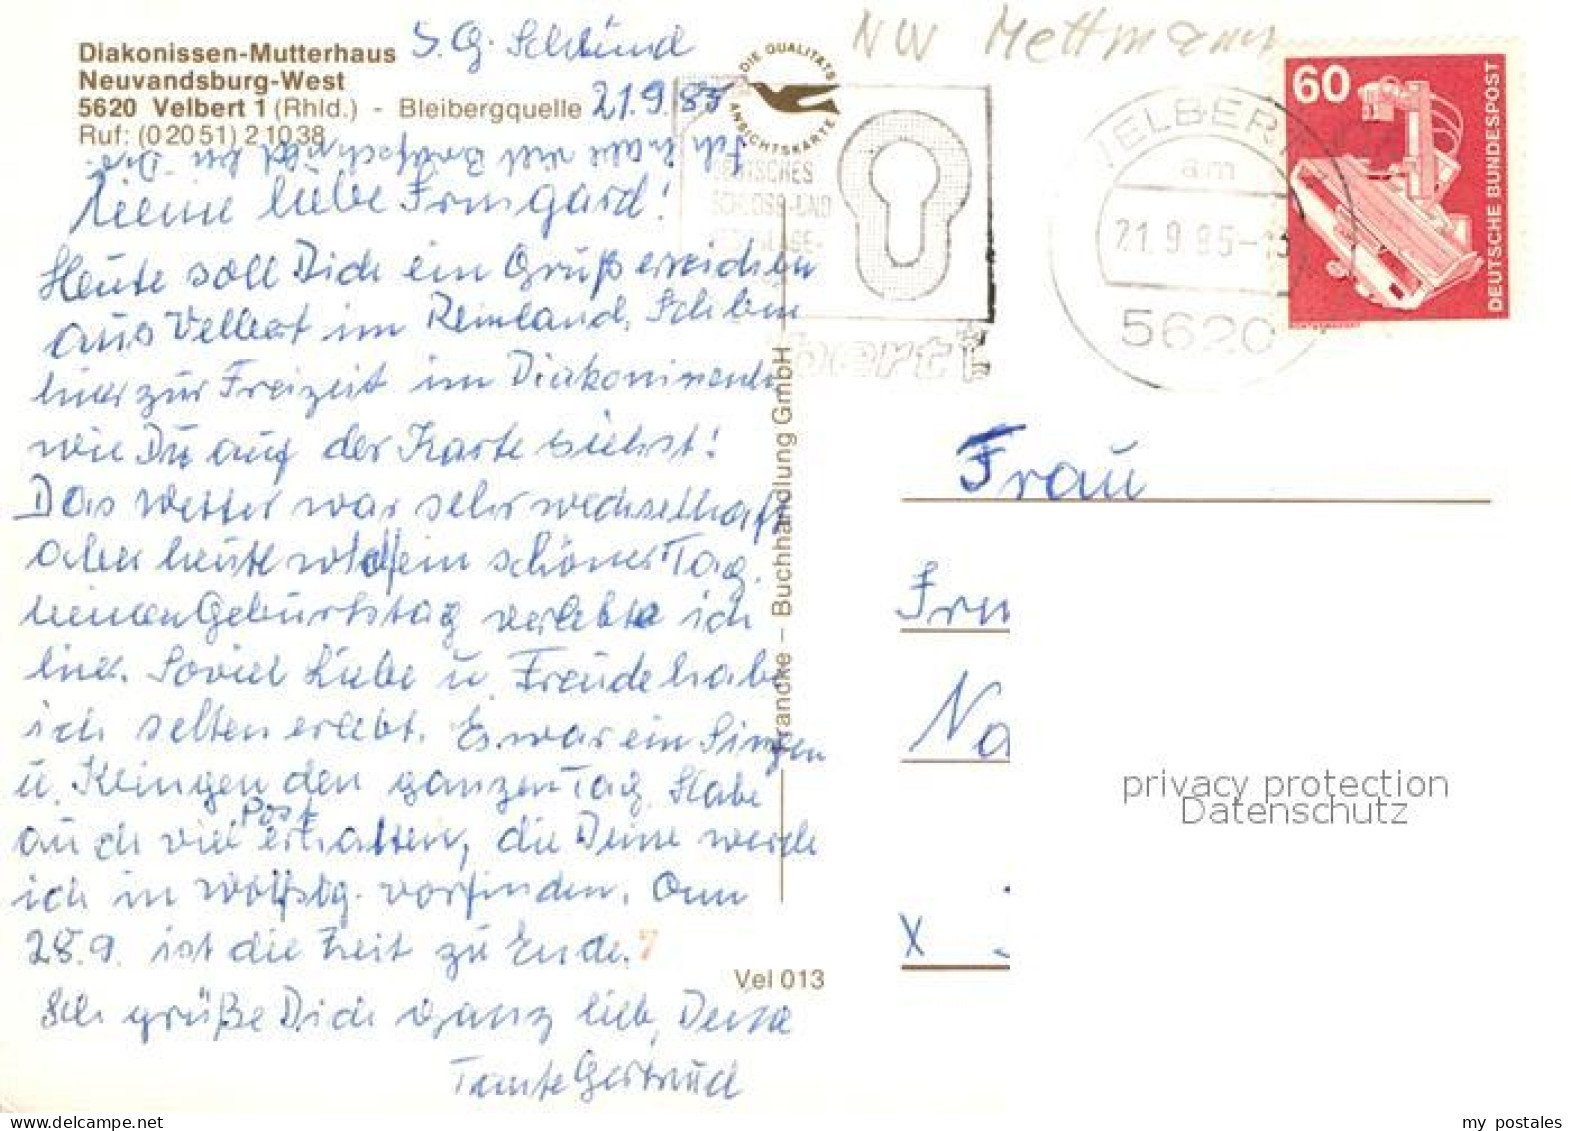 Diakonissen-Mutterhaus
Neuvandsburg-West
5620 Velbert 1 (Rhld.) - Bleibergquelle
Ruf: (0 20 51) 2 10 38
21.9.85
Meine liebe Irmgard!
Heute soll Dich ein Gruß erreichen
aus Velbert im Reinland. Ich bin
hier zur Freizeit im
wie Du auf der Karte siehst!
Das Wetter war sehr wechselhaft
aber heute wird ein schöner Tag.
Meinen Geburtstag verlebte ich
hier. Soviel Liebe u. Freude habe
ich selten erlebt. Es war ein Singen
u. Klingen den ganzen Tag. Habe
auch viel Post erhalten, die Deine werde
ich in Wolfstg. vorfinden. Am
28.9. ist die Zeit zu Ende.
Ich grüße Dich ganz lieb, Deine
Tante Gertrud
DIE QUALITÄTS
ANSICHTSKARTE
Francke – Buchhandlung GmbH
Vel 013
NW Mettmann
DEUTSCHES
SCHLOSS-UND
VELBERT 1
am
21.9.85-13
5620
60
DEUTSCHE BUNDESPOST
Frau
Irm
Na
x
privacy protection
Datenschutz
my postales